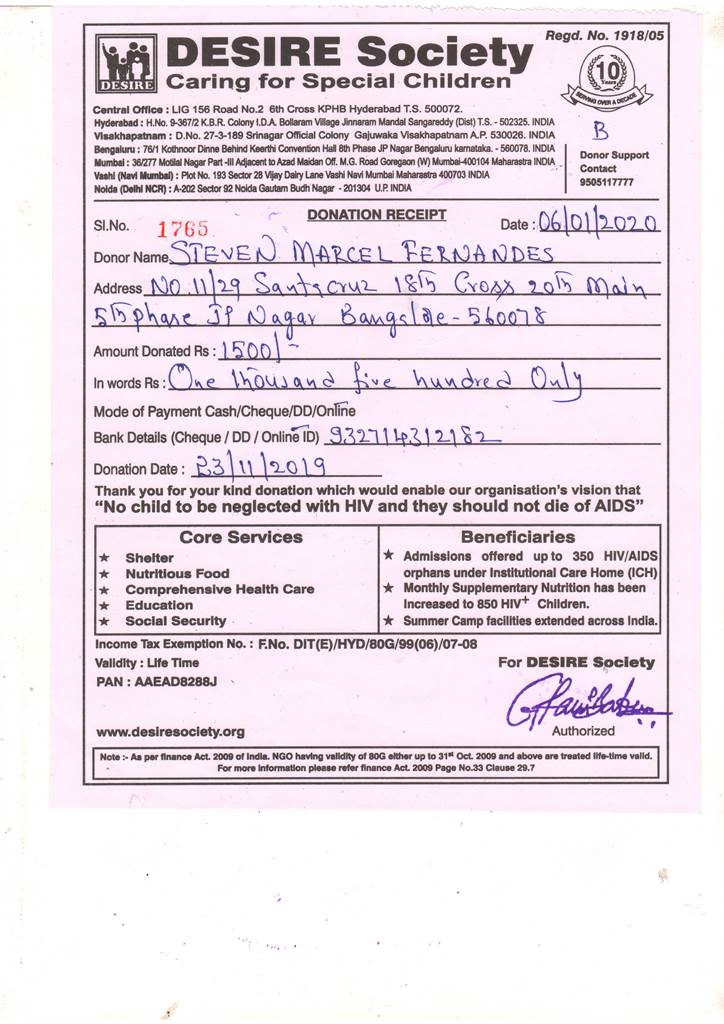 Regd. No. 1918/05
DESIRE
DESIRE Society
Caring for Special Children
10
Years
SERVING OVER A DECADE
Central Office : LIG 156 Road No.2 6th Cross KPHB Hyderabad T.S. 500072.
Hyderabad : H.No. 9-367/2 K.B.R. Colony I.D.A. Bollaram Village Jinnaram Mandal Sangareddy (Dist) T.S. - 502325. INDIA
Visakhapatnam : D.No. 27-3-189 Srinagar Official Colony Gajuwaka Visakhapatnam A.P. 530026. INDIA
Bengaluru : 76/1 Kothnoor Dinne Behind Keerthi Convention Hall 8th Phase JP Nagar Bengaluru karnataka. - 560078. INDIA
Mumbai : 36/277 Motilal Nagar Part -III Adjacent to Azad Maidan Off. M.G. Road Goregaon (W) Mumbai-400104 Maharastra INDIA
Vashi (Navi Mumbai) : Plot No. 193 Sector 28 Vijay Dairy Lane Vashi Navi Mumbai Maharastra 400703 INDIA
Noida (Delhi NCR) : A-202 Sector 92 Noida Gautam Budh Nagar - 201304 U.P. INDIA
B
Donor Support
Contact
9505117777
DONATION RECEIPT
Sl.No. 1765 Date : 06/01/2020
Donor Name STEVEN MARCEL FERNANDES
Address NO.11/29 Santacruz 18th Cross 20th Main
5th phase JP Nagar Bangalore - 560078
Amount Donated Rs : 1500/-
In words Rs : One thousand five hundred Only
Mode of Payment Cash/Cheque/DD/Online
Bank Details (Cheque / DD / Online ID) 932714312182
Donation Date : 23/11/2019
Thank you for your kind donation which would enable our organisation's vision that
"No child to be neglected with HIV and they should not die of AIDS"
Core Services
★ Shelter
★ Nutritious Food
★ Comprehensive Health Care
★ Education
★ Social Security
Beneficiaries
★ Admissions offered up to 350 HIV/AIDS
orphans under Institutional Care Home (ICH)
★ Monthly Supplementary Nutrition has been
Increased to 850 HIV+ Children.
★ Summer Camp facilities extended across India.
Income Tax Exemption No. : F.No. DIT(E)/HYD/80G/99(06)/07-08
Validity : Life Time
PAN : AAEAD8288J
For DESIRE Society
Authorized
www.desiresociety.org
Note :- As per finance Act. 2009 of India. NGO having validity of 80G either up to 31st Oct. 2009 and above are treated life-time valid.
For more information please refer finance Act. 2009 Page No.33 Clause 29.7